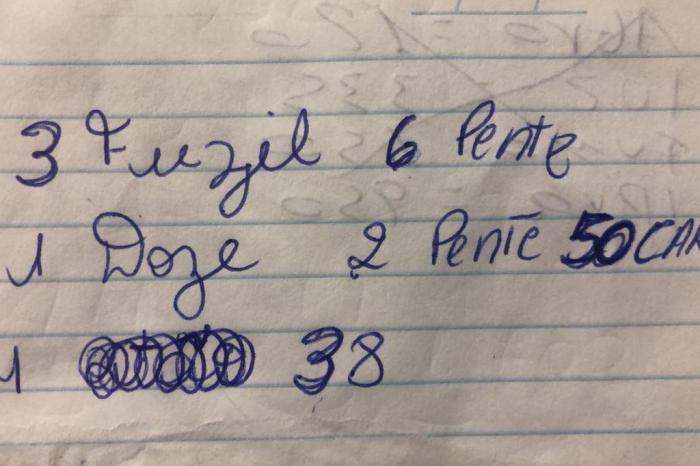 3 Fuzil 6 Pente
1 Doze 2 Pente 50 CAR
1 38